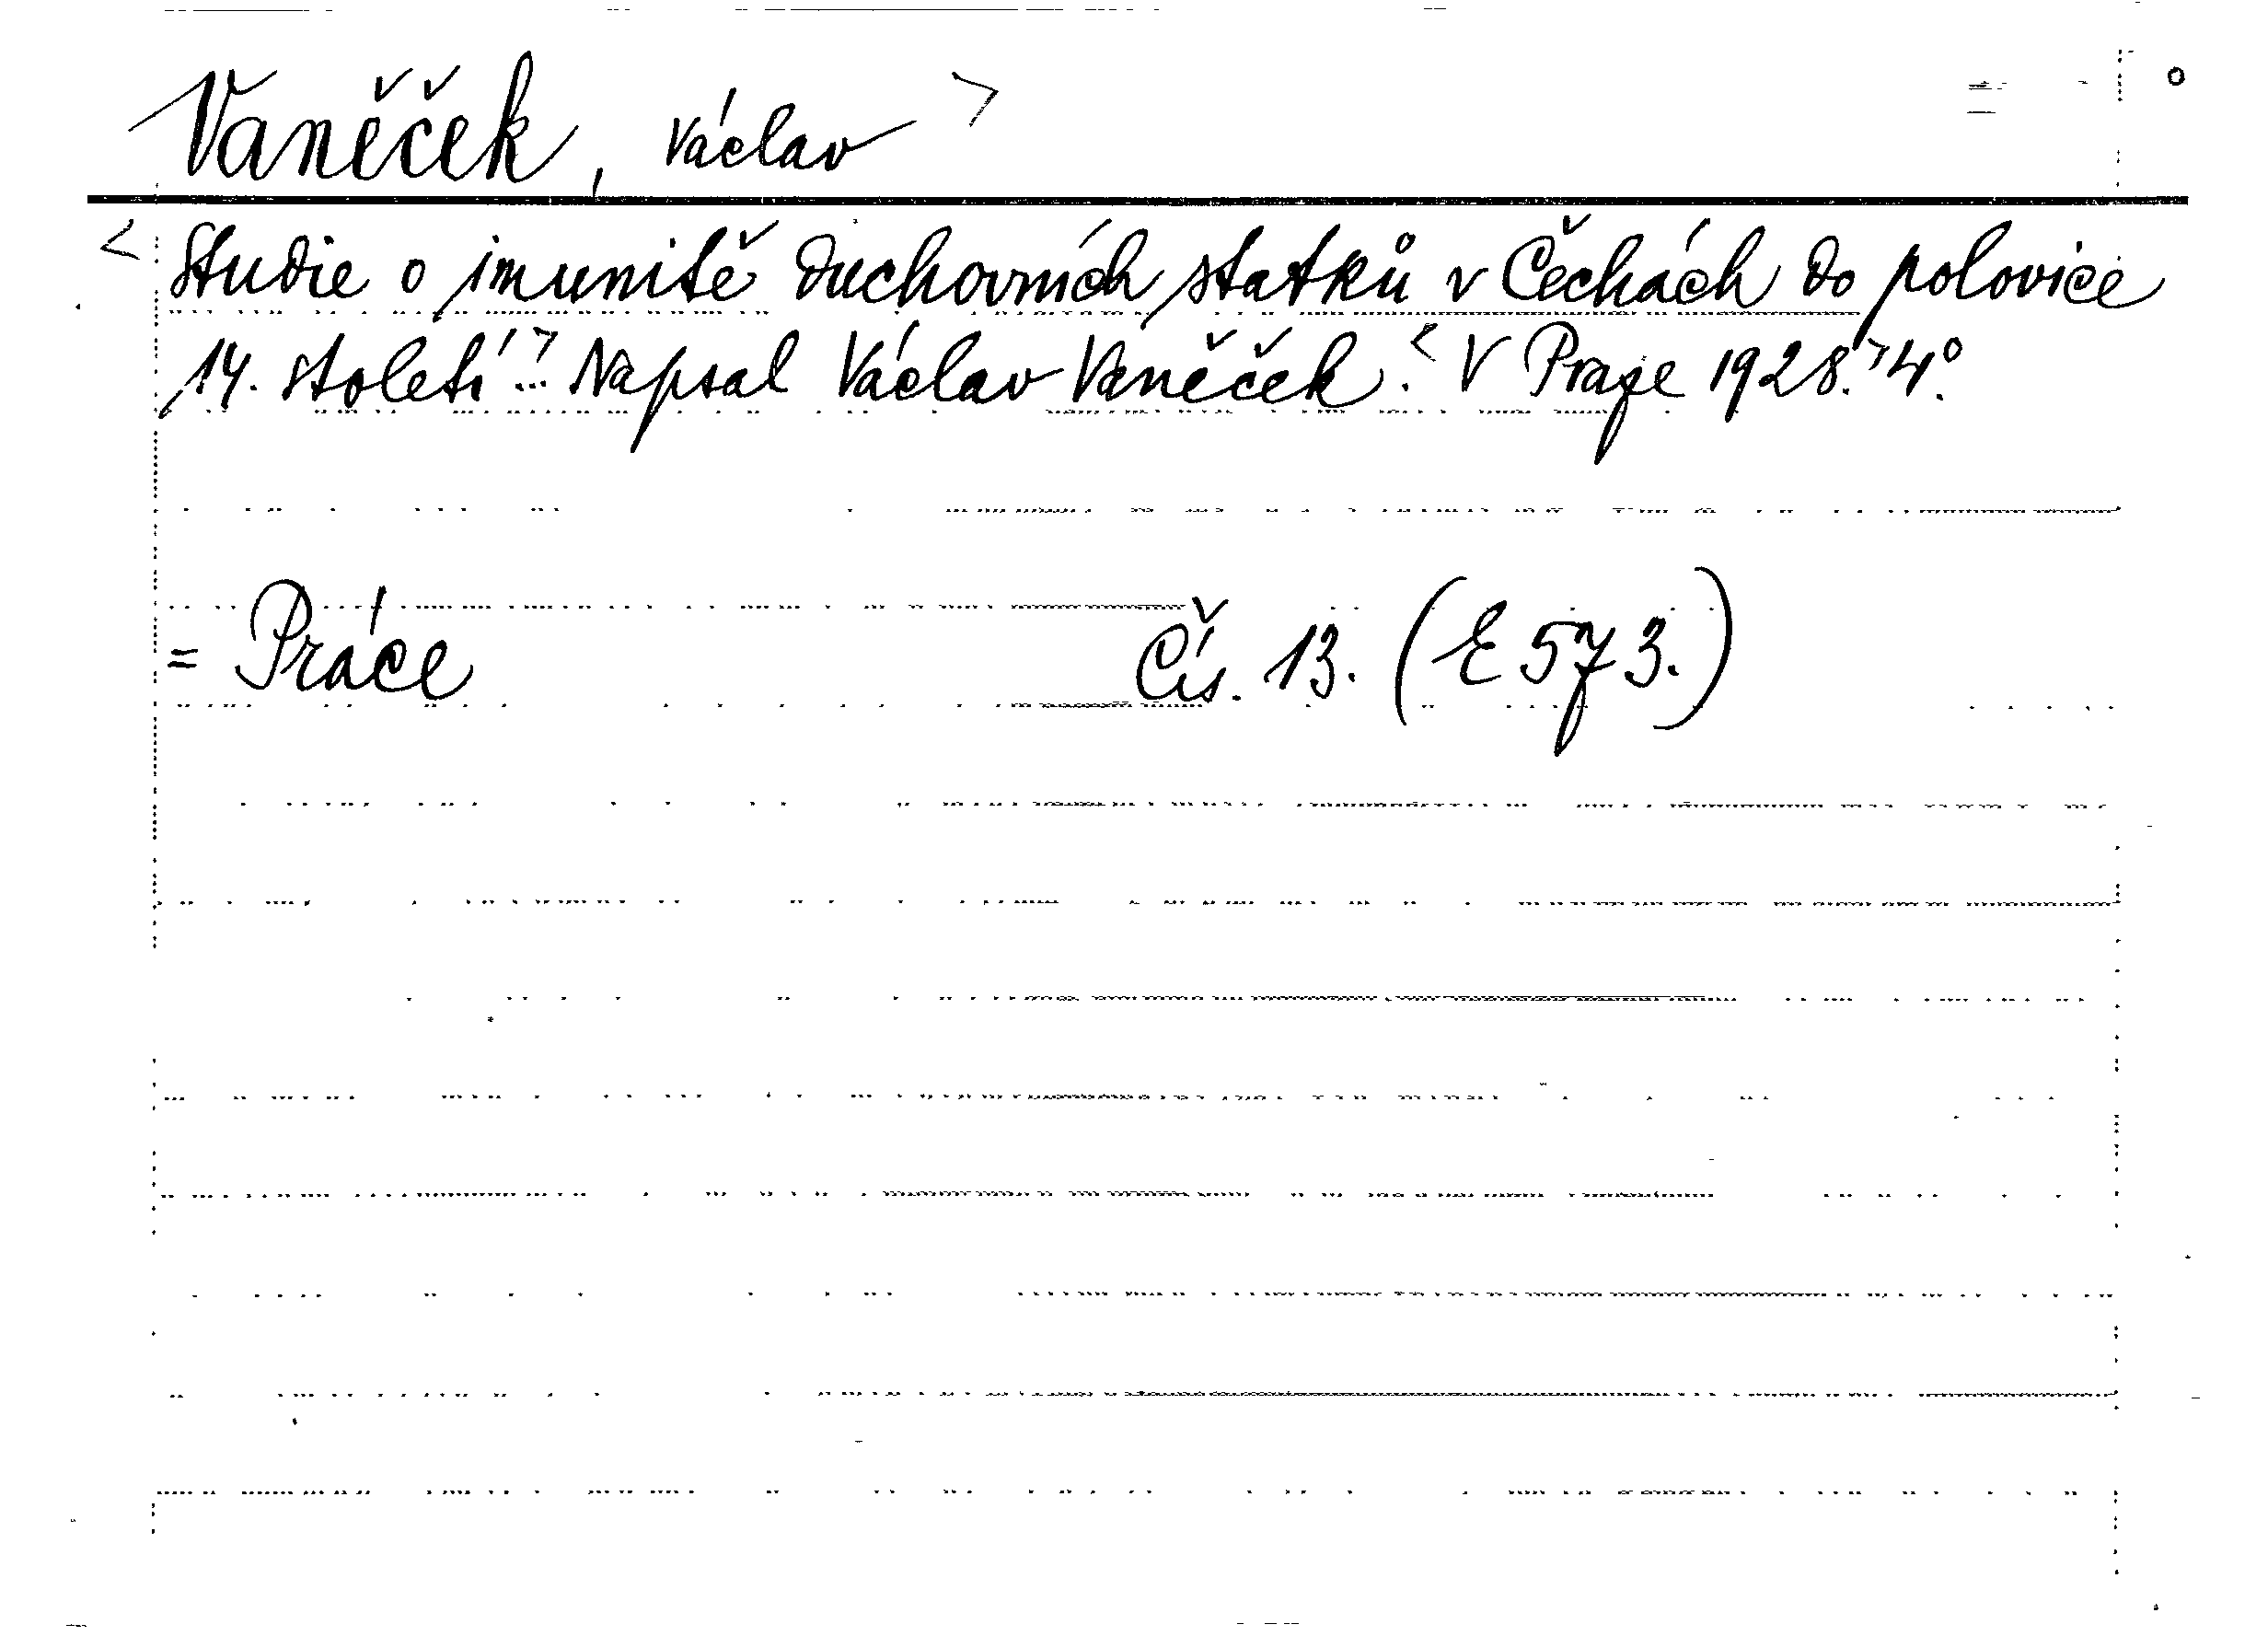 Vaněček, Václav >
< Studie o imunitě duchovních statků v Čechách do polovice
14. století >... Napsal Václav Vaněček. < V Praze 1928. > 4°.
= Práce Čís. 13. (E 573.)